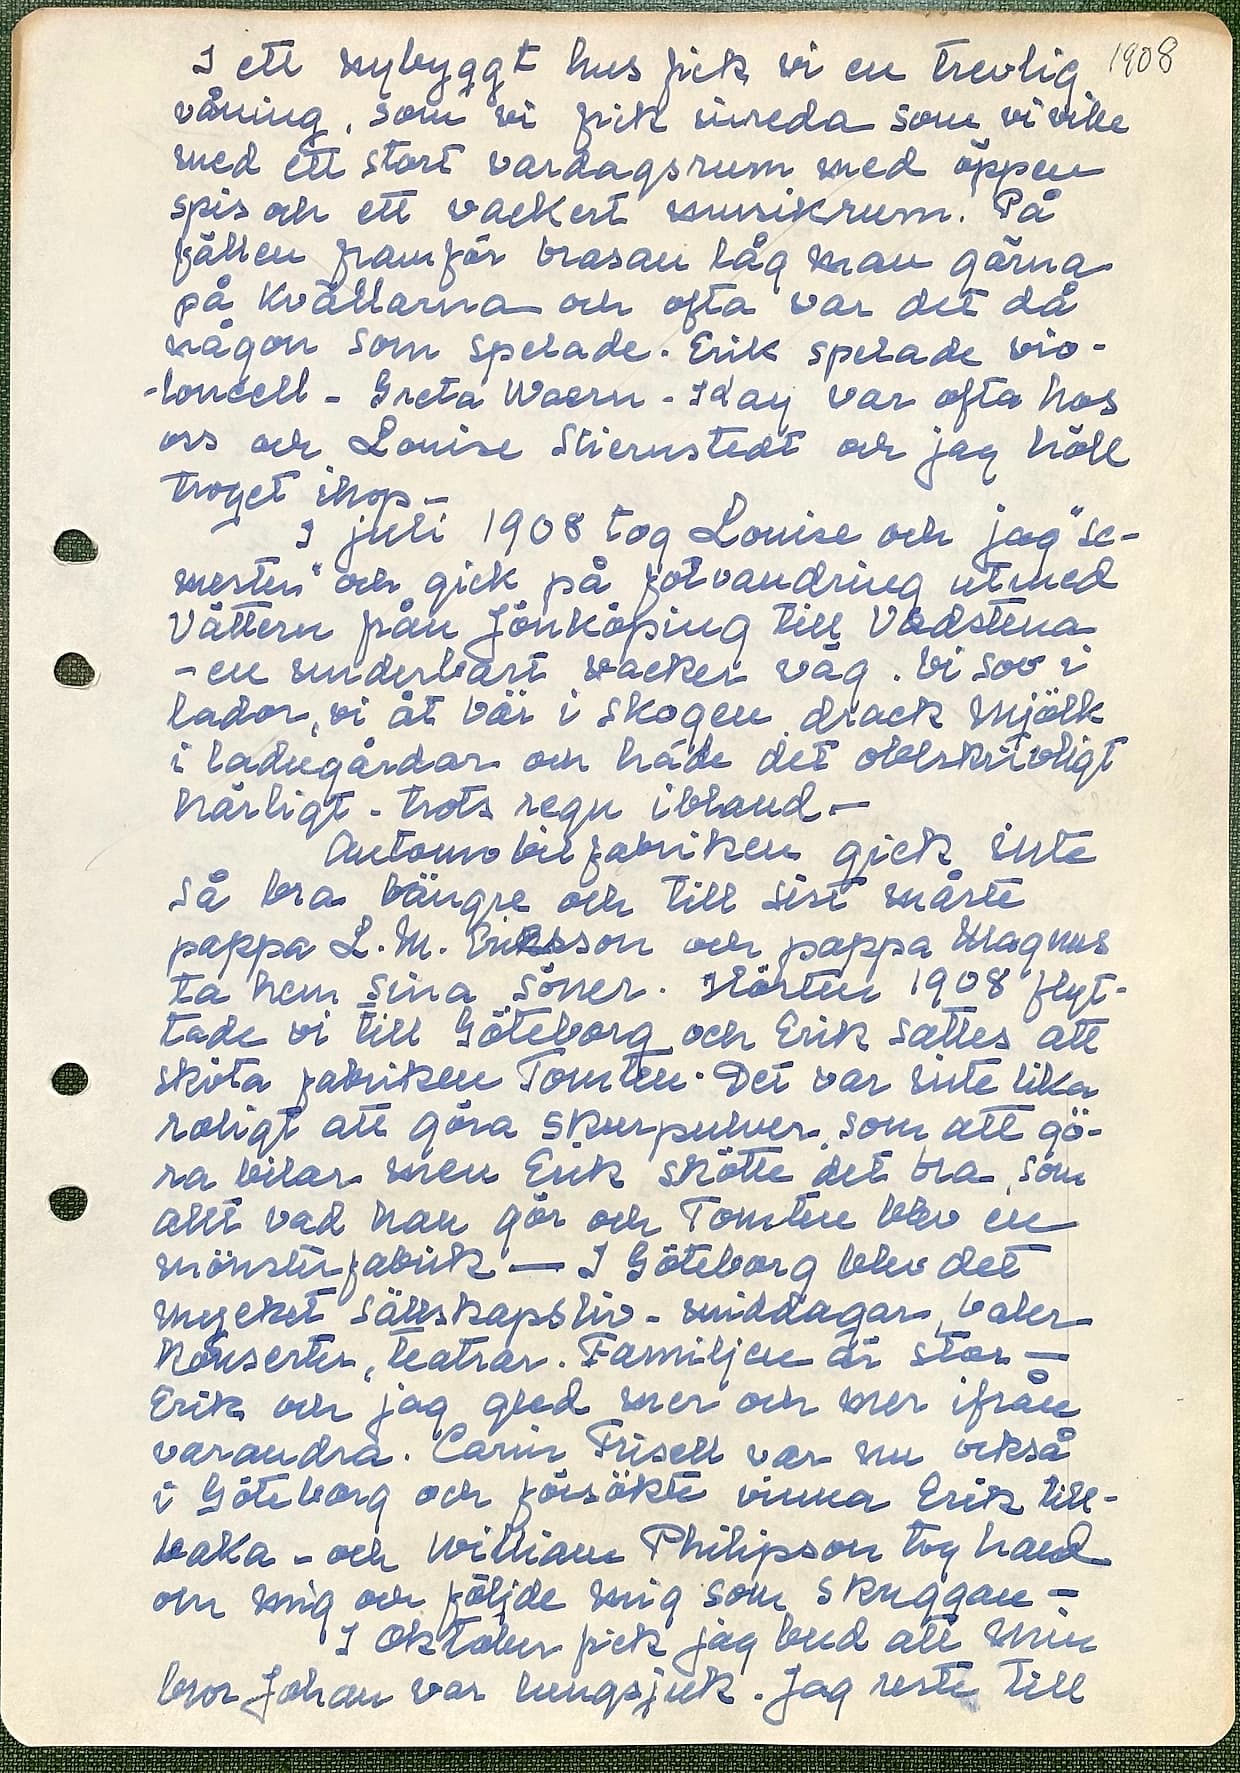 1908
I ett nybyggt hus fick vi en trevlig
våning, som vi fick inreda som vi ville
med ett stort vardagsrum med öppen
spis och ett vackert musikrum. På
fällen framför brasan låg man gärna
på kvällarna och ofta var det då
någon som spelade. Erik spelade vio-
-loncell - Greta Waern - Iday var ofta hos
oss och Louise Stiernstedt och jag höll
troget ihop -
I juli 1908 tog Louise och jag "se-
mester" och gick på fotvandring utmed
Vättern från Jönköping till Vadstena
- en underbart vacker väg. Vi sov i
lador, vi åt bär i skogen drack mjölk
i ladugårdar och hade det obeskrivligt
härligt - trots regn ibland -
Automobilfabriken gick inte
så bra längre och till sist måste
pappa L. M. Eriksson och pappa Magnus
ta hem sina söner. Hösten 1908 flyt-
tade vi till Göteborg och Erik sattes att
sköta fabriken Tomten. Det var inte lika
roligt att göra skurpulver, som att gö-
ra bilar men Erik skötte det bra, som
allt vad han gör och Tomten blev en
mönsterfabrik — I Göteborg blev det
mycket sällskapsliv - middagar, baler
konserter, teatrar. Familjen är stor —
Erik och jag gled mer och mer ifrån
varandra. Carin Frisell var nu också
i Göteborg och försökte vinna Erik till-
baka - och William Philipson tog hand
om mig och följde mig som skuggan -
I Oktober fick jag bud att min
bror Johan var lungsjuk. Jag reste till